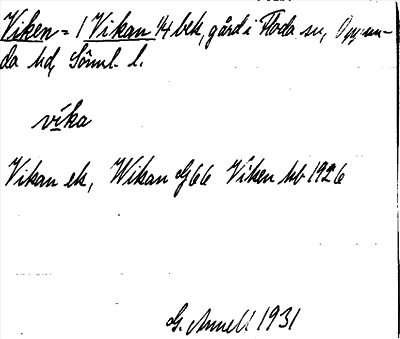 Viken = 1 Vikan 1/4 bek, gård i Floda sn, Oppun-
da hd, Sörml. l.
vika
Vikan ek, Wikan G66 Viken hb 1926
G. Annell 1931